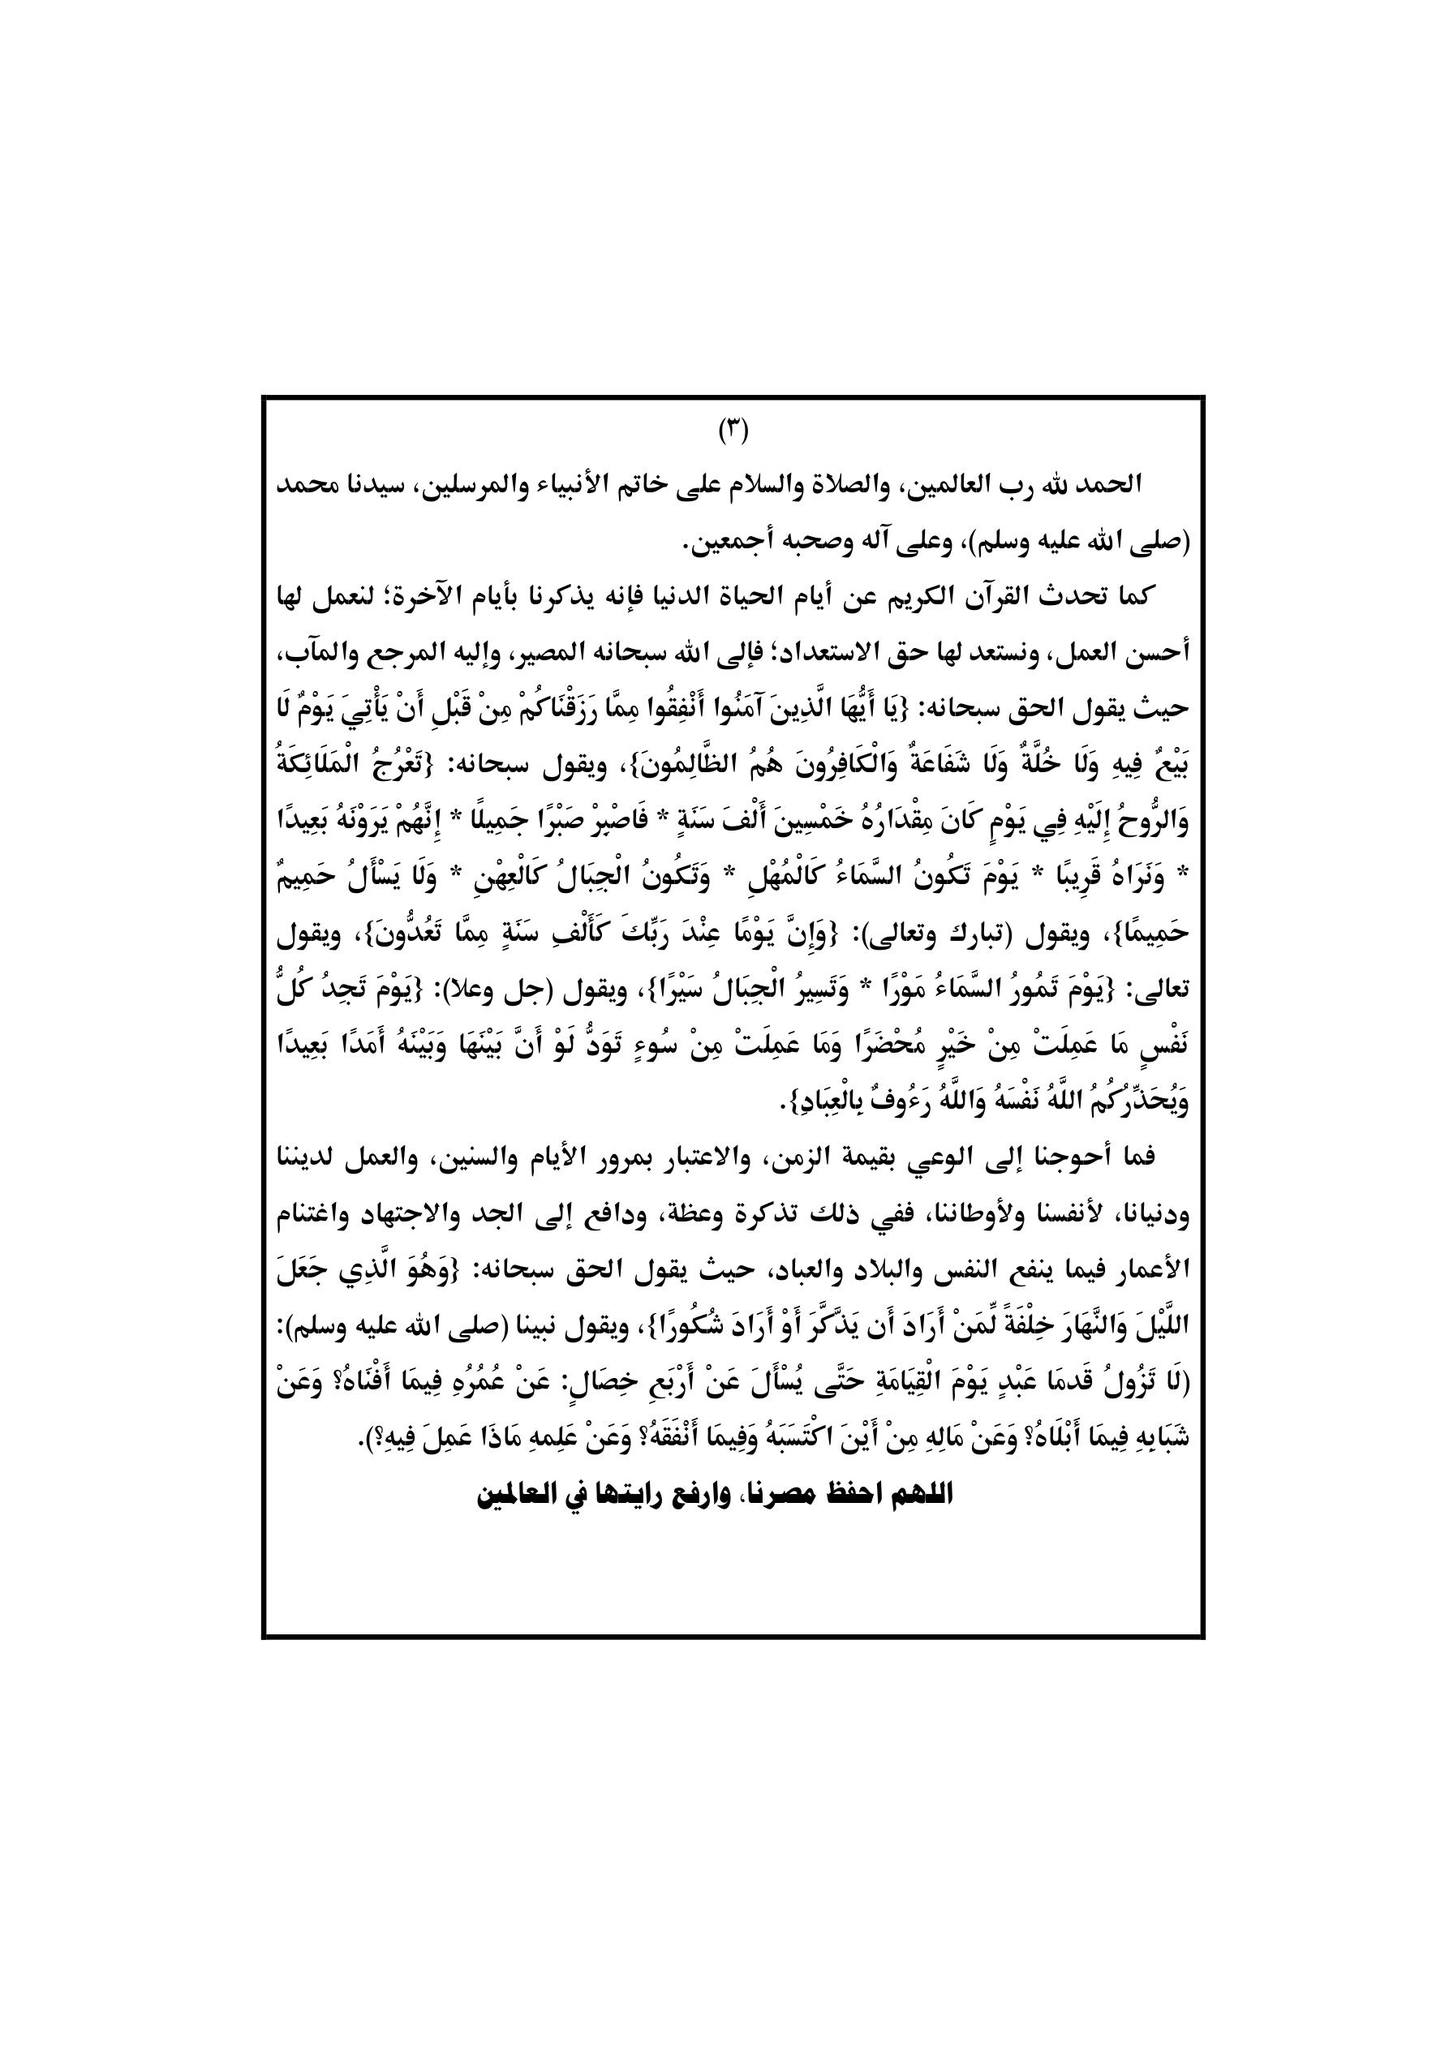 (٣)
الحمد لله رب العالمين، والصلاة والسلام على خاتم الأنبياء والمرسلين، سيدنا محمد
(صلى الله عليه وسلم)، وعلى آله وصحبه أجمعين.
كما تحدث القرآن الكريم عن أيام الحياة الدنيا فإنه يذكرنا بأيام الآخرة؛ لنعمل لها
أحسن العمل، ونستعد لها حق الاستعداد؛ فإلى الله سبحانه المصير، وإليه المرجع والمآب،
حيث يقول الحق سبحانه: {يَا أَيُّهَا الَّذِينَ آمَنُوا أَنْفِقُوا مِمَّا رَزَقْنَاكُمْ مِنْ قَبْلِ أَنْ يَأْتِيَ يَوْمٌ لَا
بَيْعٌ فِيهِ وَلَا خُلَّةٌ وَلَا شَفَاعَةٌ وَالْكَافِرُونَ هُمُ الظَّالِمُونَ}، ويقول سبحانه: {تَعْرُجُ الْمَلَائِكَةُ
وَالرُّوحُ إِلَيْهِ فِي يَوْمٍ كَانَ مِقْدَارُهُ خَمْسِينَ أَلْفَ سَنَةٍ * فَاصْبِرْ صَبْرًا جَمِيلًا * إِنَّهُمْ يَرَوْنَهُ بَعِيدًا
* وَنَرَاهُ قَرِيبًا * يَوْمَ تَكُونُ السَّمَاءُ كَالْمُهْلِ * وَتَكُونُ الْجِبَالُ كَالْعِهْنِ * وَلَا يَسْأَلُ حَمِيمٌ
حَمِيمًا}، ويقول (تبارك وتعالى): {وَإِنَّ يَوْمًا عِنْدَ رَبِّكَ كَأَلْفِ سَنَةٍ مِمَّا تَعُدُّونَ}، ويقول
تعالى: {يَوْمَ تَمُورُ السَّمَاءُ مَوْرًا * وَتَسِيرُ الْجِبَالُ سَيْرًا}، ويقول (جل وعلا): {يَوْمَ تَجِدُ كُلُّ
نَفْسٍ مَا عَمِلَتْ مِنْ خَيْرٍ مُحْضَرًا وَمَا عَمِلَتْ مِنْ سُوءٍ تَوَدُّ لَوْ أَنَّ بَيْنَهَا وَبَيْنَهُ أَمَدًا بَعِيدًا
وَيُحَذِّرُكُمُ اللَّهُ نَفْسَهُ وَاللَّهُ رَءُوفٌ بِالْعِبَادِ}.
فما أحوجنا إلى الوعي بقيمة الزمن، والاعتبار بمرور الأيام والسنين، والعمل لديننا
ودنيانا، لأنفسنا ولأوطاننا، ففي ذلك تذكرة وعظة، ودافع إلى الجد والاجتهاد واغتنام
الأعمار فيما ينفع النفس والبلاد والعباد، حيث يقول الحق سبحانه: {وَهُوَ الَّذِي جَعَلَ
اللَّيْلَ وَالنَّهَارَ خِلْفَةً لِّمَنْ أَرَادَ أَن يَذَّكَّرَ أَوْ أَرَادَ شُكُورًا}، ويقول نبينا (صلى الله عليه وسلم):
(لَا تَزُولُ قَدمَا عَبْدٍ يَوْمَ الْقِيَامَةِ حَتَّى يُسْأَلَ عَنْ أَرْبَعِ خِصَالٍ: عَنْ عُمُرُهِ فِيمَا أَفْنَاهُ؟ وَعَنْ
شَبَابِهِ فِيمَا أَبْلَاهُ؟ وَعَنْ مَالِهِ مِنْ أَيْنَ اكْتَسَبَهُ وَفِيمَا أَنْفَقَهُ؟ وَعَنْ عَلِمهِ مَاذَا عَمِلَ فِيهِ؟).
اللهم احفظ مصرنا، وارفع رايتها في العالمين